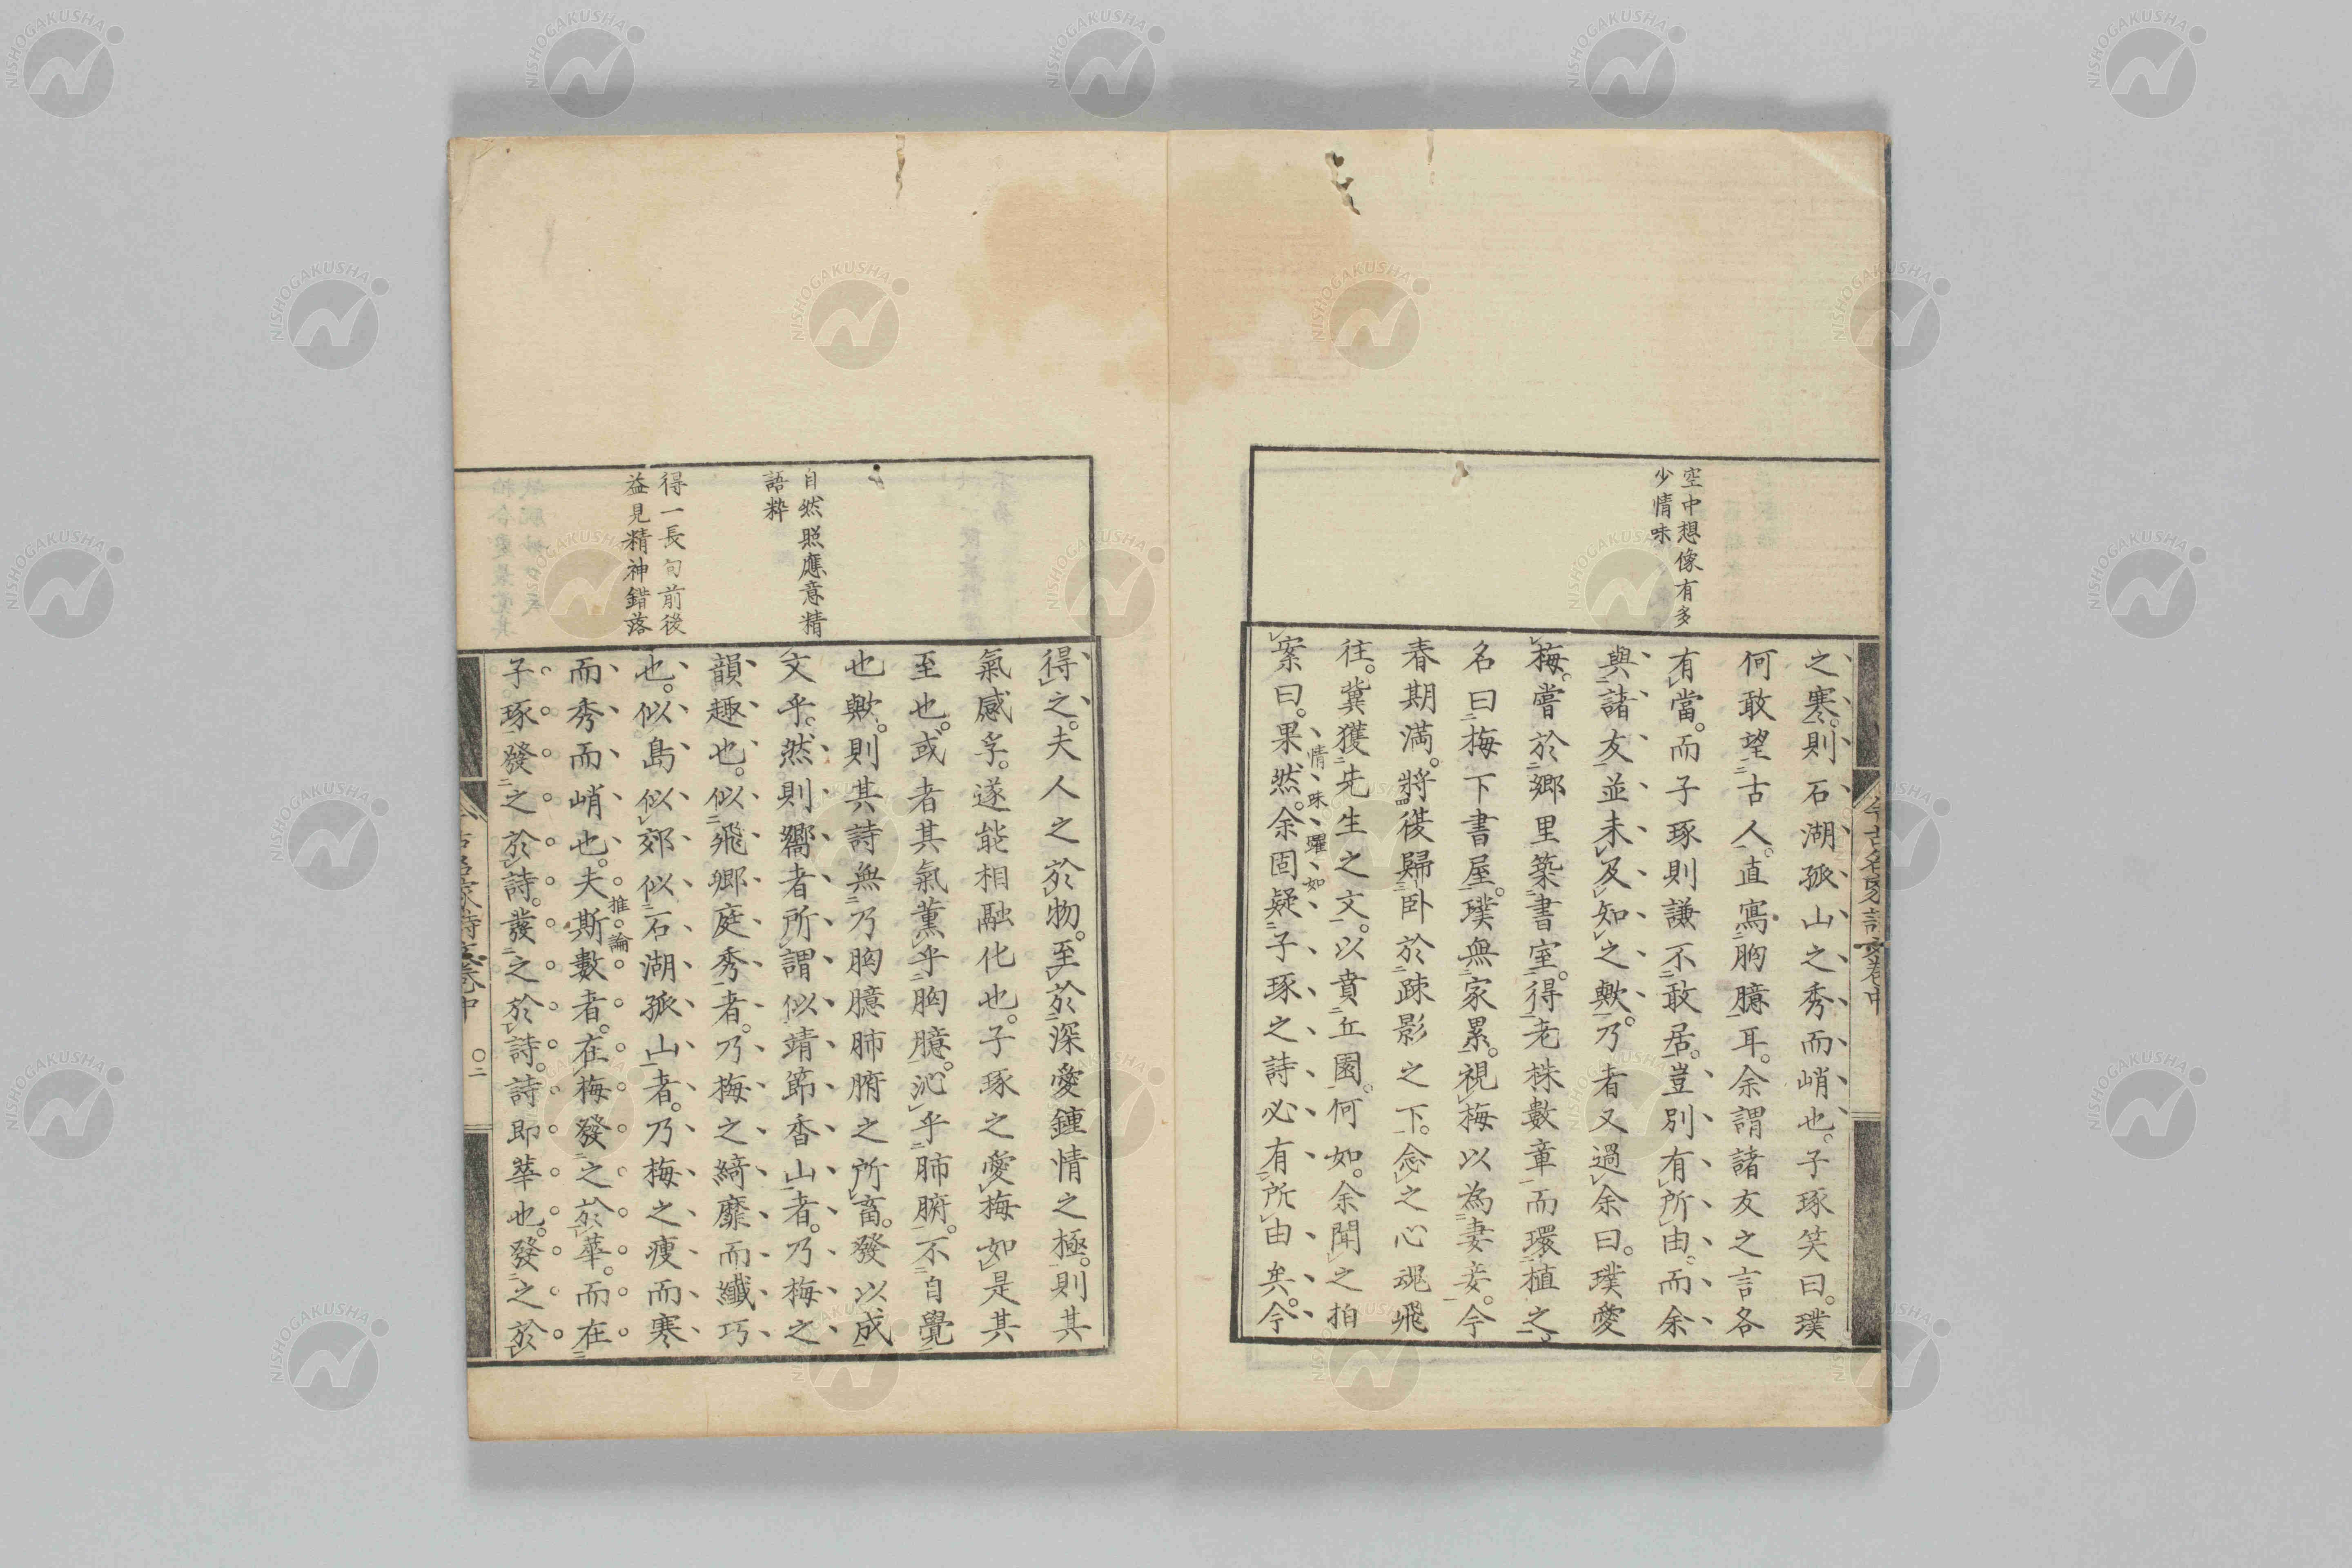 空中想像有多
少情味
之寒。則石湖孤山之秀而峭也。子琢笑曰。璞
何敢望古人。直寫胸臆耳。余謂諸友之言各
有當。而子琢則謙不敢居。豈別有所由。而余
與諸友並未及知之歟。乃者又過余曰。璞愛
梅。嘗於鄉里築書室。得老株數章而環植之。
名曰梅下書屋。璞無家累。視梅以為妻妾。今
春期滿。將復歸臥於疎影之下。念之心魂飛
往。冀獲先生之文。以賁丘園。何如。余聞之拍
案曰。果然。余固疑子琢之詩必有所由矣。今
情味躍如
自然照應意精
語粋
得一長句前後
益見精神錯落
得之。夫人之於物。至於深愛鍾情之極。則其
氣感孚。遂能相融化也。子琢之愛梅如是其
至也。或者其氣薰乎胸臆。沁乎肺腑。不自覺
也歟。則其詩無乃胸臆肺腑之所畜。發以成
文乎。然則嚮者所謂似靖節香山者。乃梅之
韻趣也。似飛卿庭秀者。乃梅之綺靡而纖巧
也。似島似郊似石湖孤山者。乃梅之瘦而寒
而秀而峭也。夫斯數者。在梅發之於華。而在
推論
子琢發之於詩。發之於詩。詩即華也。發之於
今古名家詩文卷中
〇二
NISHOGAKUSHA